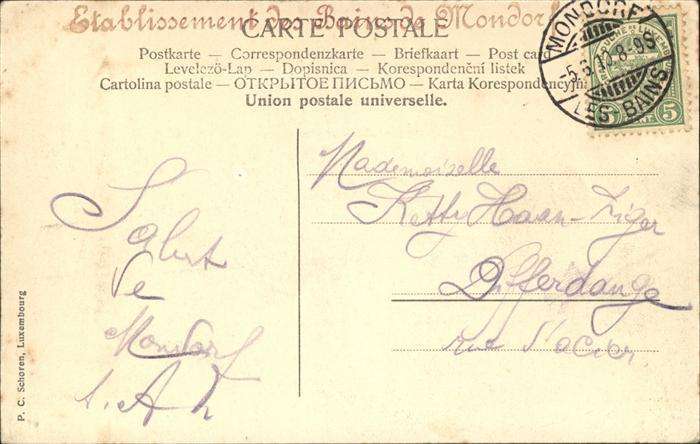 Etablissement des Bains de Mondorf
CARTE POSTALE
Postkarte — Correspondenzkarte — Briefkaart — Post card
Levelező-Lap — Dopisnica — Korespondenční listek
Cartolina postale — ОТКРЫТОЕ ПИСЬМО — Karta Korespondencyjna
Union postale universelle.
MONDORF
-5.8.10.8-9S
LES BAINS
5 5
CENT.
Mademoiselle
Ketty Haan-Ziger
Differdange
rue d'acier
Salut
de
Mondorf
P. C. Schoren, Luxembourg